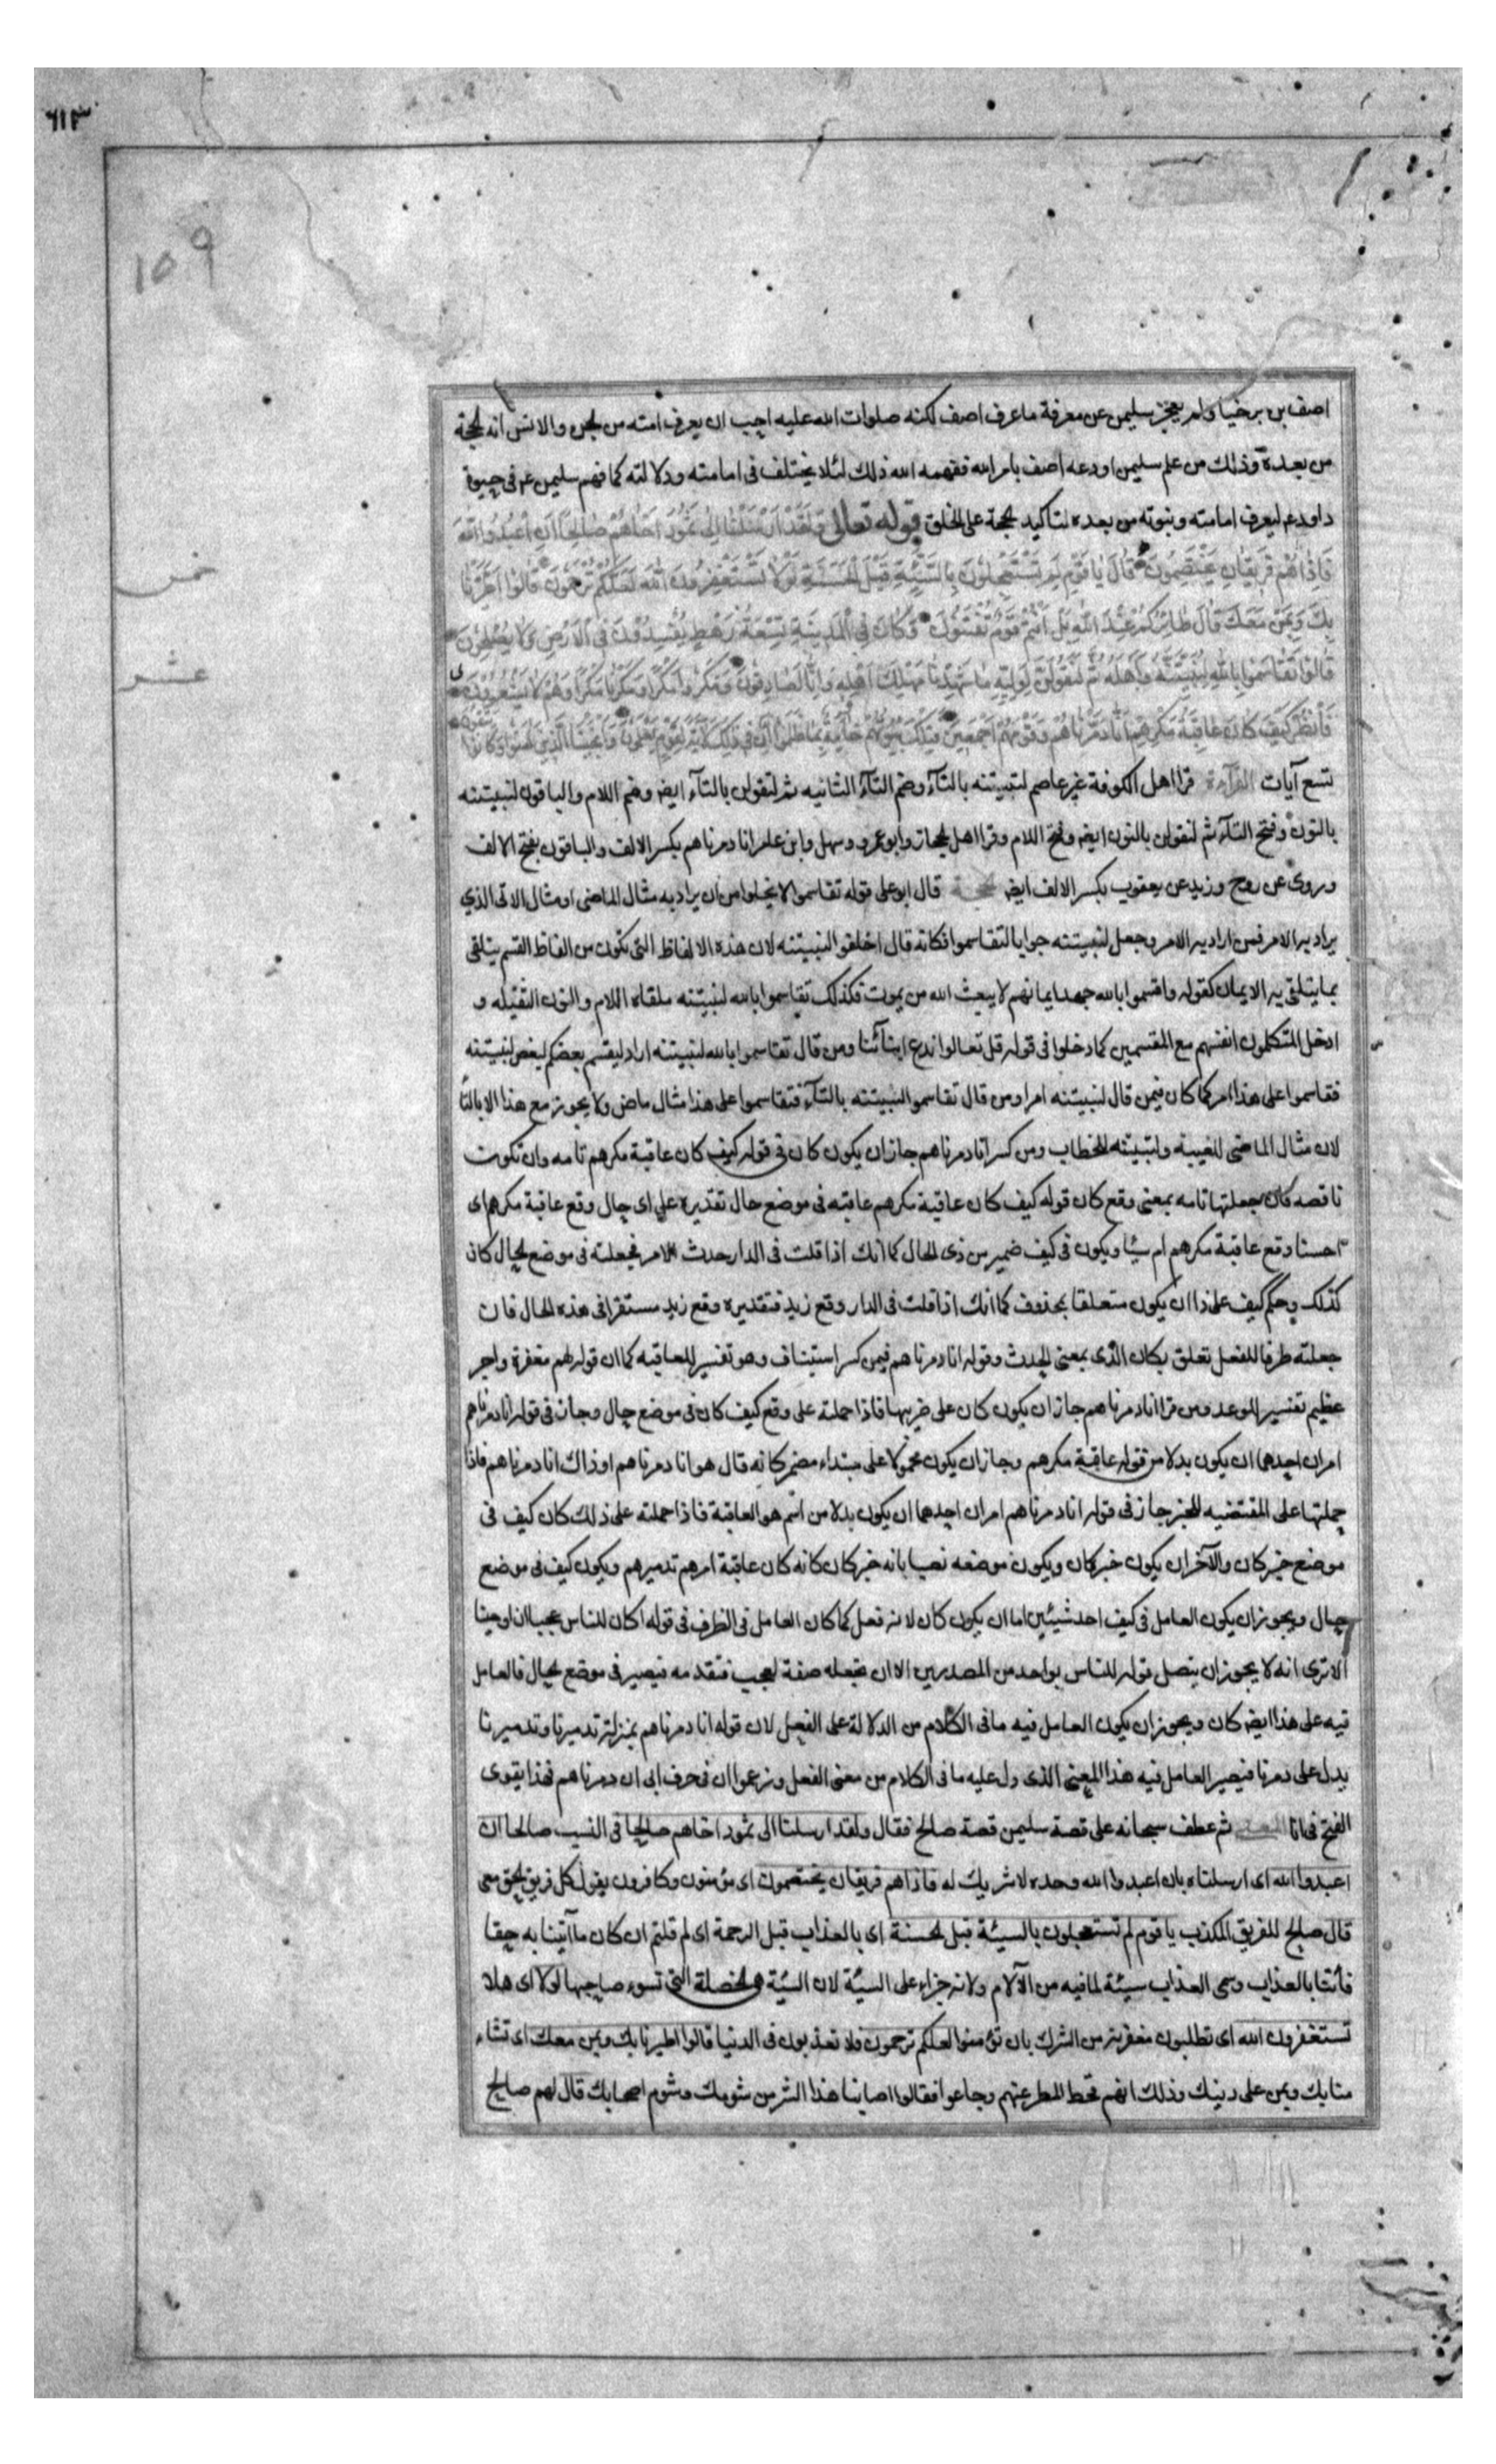 ٦١٣
١٥٩
اصف بن برخيا ولم يعجز سليمن عن معرفة ما عرف اصف لكنه صلوات الله عليه احب ان يعرف امته من الجن والانس انه الحجة
من بعده وذلك من علم سليمن اودعه اصف بامر الله ففهمه الله ذلك لئلا يختلف فى امامته ودلالته كما فهم سليمن ع م فى حيوة
داودع م ليعرف امامته ونبوته من بعده لتاكيد الحجة على الخلق قوله تعالى وَلَقَدْ اَرْسَلْنَا اِلٰى ثَمُودَ اَخَاهُمْ صَالِحًا اَنِ اعْبُدُوا اللهَ
فَاِذَا هُمْ فَرِيقَانِ يَخْتَصِمُونَ قَالَ يَا قَوْمِ لِمَ تَسْتَعْجِلُونَ بِالسَّيِّئَةِ قَبْلَ الْحَسَنَةِ لَوْلَا تَسْتَغْفِرُونَ اللهَ لَعَلَّكُمْ تُرْحَمُونَ قَالُوا اطَّيَّرْنَا
خمس
بِكَ وَبِمَنْ مَعَكَ قَالَ طَائِرُكُمْ عِنْدَ اللهِ بَلْ اَنْتُمْ قَوْمٌ تُفْتَنُونَ وَكَانَ فِى الْمَدِينَةِ تِسْعَةُ رَهْطٍ يُفْسِدُونَ فِى الْاَرْضِ وَلَا يُصْلِحُونَ
عشر
قَالُوا تَقَاسَمُوا بِاللهِ لَنُبَيِّتَنَّهُ وَاَهْلَهُ ثُمَّ لَنَقُولَنَّ لِوَلِيِّهِ مَا شَهِدْنَا مَهْلِكَ اَهْلِهِ وَاِنَّا لَصَادِقُونَ وَمَكَرُوا مَكْرًا وَمَكَرْنَا مَكْرًا وَهُمْ لَا يَشْعُرُونَ
فَانْظُرْ كَيْفَ كَانَ عَاقِبَةُ مَكْرِهِمْ اَنَّا دَمَّرْنَاهُمْ وَقَوْمَهُمْ اَجْمَعِينَ فَتِلْكَ بُيُوتُهُمْ خَاوِيَةً بِمَا ظَلَمُوا اِنَّ فِى ذٰلِكَ لَاٰيَةً لِقَوْمٍ يَعْلَمُونَ وَاَنْجَيْنَا الَّذِينَ اٰمَنُوا وَكَانُوا يتقون
تسع آيات القرآءة قرا اهل الكوفة غير عاصم لتبيتنه بالتآء وضم التآء الثانيه ثم لتقولن بالتآء ايضا وضم اللام والباقون لنبيتنه
بالنون وفتح التآء ثم لنقولن بالنون ايضا وفتح اللام وقرا اهل الحجاز وابو عمرو وسهل وابن عامر انا دمرناهم بكسر الالف والباقون بفتح الالف
وروى عن روح وزيد عن يعقوب بكسر الالف ايضا الحجة قال ابو على قوله تقاسموا لا يخلوا من ان يراد به مثال الماضى او مثال الاتى الذي
يراد به الامر فمن اراد به الامر وجعل لنبيتنه جوابا لتقاسموا فكانه قال احلفوا لنبيتنه لان هذه الالفاظ التى تكون من الفاظ القسم يتلقى
بما يتلقى به الايمان كقوله واقسموا بالله جهد ايمانهم لا يبعث الله من يموت فكذلك تقاسموا بالله لنبيتنه ملقاه اللام والنون الثقيله و
ادخل المتكلمون انفسهم مع المقسمين كما دخلوا فى قوله قل تعالوا ندع ابنآئنا ومن قال تقاسموا بالله لتبيتنه اراد ليقسم بعضكم لبعض لتبيتنه
فتقاسموا على هذا امر كما كان فيمن قال لنبيتنه امرا ومن قال تقاسموا ليبيتنه بالتآء فتقاسموا على هذا مثال ماض ولا يجوز مع هذا الا بالتآ
لان مثال الماضى للغيبة ولتبيتنه للخطاب ومن كسر انا دمرناهم جاز ان يكون كان فى قوله كيف كان عاقبة مكرهم تامه وان تكون
ناقصه فان جعلتها تامه بمعنى وقع كان قوله كيف كان عاقبة مكرهم عاقبته فى موضع حال تقديره على اى حال وقع عاقبة مكرهم اى
احسنا وقع عاقبة مكرهم ام سيئا ويكون فى كيف ضمير من ذى الحال كما انك اذا قلت فى الدار حدث الامر فجعلته فى موضع الحال كان
كذلك وحكم كيف على ذا ان يكون متعلقا بمحذوف كما انك اذا قلت فى الدار وقع زيد فتقديره وقع زيد مستقرا فى هذه الحال فان
جعلته ظرفا للفعل تعلق بكان الذى بمعنى الحدث وقوله انا دمرناهم فيمن كسر استيناف وهو تفسير للعاقبه كما ان قوله لهم مغفرة واجر
عظيم تفسير للوعد ومن قرا انا دمرناهم جاز ان يكون كان على ضربيها فاذا حملته على وقع كيف كان فى موضع حال وجاز فى قوله انا دمرناهم
امران احدهما ان يكون بدلا من قوله عاقبة مكرهم وجاز ان يكون محمولا على مبتداء مضمر كانه قال هو انا دمرناهم او ذاك انا دمرناهم فاذا
حملتها على المقتضيه للخبر جاز فى قوله انا دمرناهم امران احدهما ان يكون بدلا من اسم هو العاقبة فاذا حملته على ذلك كان كيف فى
موضع خبر كان والآخر ان يكون خبر كان ويكون موضعه نصبا بانه خبر كان كانه كان عاقبة امرهم تدميرهم ويكون كيف فى موضع
حال ويجوز ان يكون العامل فى كيف احد شيئين اما ان يكون كان لانه فعل كما كان العامل فى الظرف فى قوله اكان للناس عجبا ان اوحينا
الا ترى انه لا يجوز ان يتصل قوله للناس بواحد من المصدرين الا ان تجعله صفة لعجب فتقدمه فيصير فى موضع الحال فالعامل
فيه على هذا ايضا كان ويجوز ان يكون العامل فيه ما فى الكلام من الدلالة على الفعل لان قوله انا دمرناهم بمنزلة تدميرنا وتدميرنا
يدل على دمرنا فيصير العامل فيه هذا المعنى الذى دل عليه ما فى الكلام من معنى الفعل وزعموا ان فى حرف ابى ان دمرناهم فهذا يقوى
الفتح فى انا المعنى ثم عطف سبحانه على قصة سليمن قصة صالح فقال ولقد ارسلنا الى ثمود اخاهم صالحا فى النسب صالحا ان
اعبدوا الله اى ارسلناه بان اعبدوا الله وحده لا شريك له فاذا هم فريقان يختصمون اى مؤمنون وكافرون يقول كل فريق الحق معى
قال صالح للفريق المكذب يا قوم لم تستعجلون بالسيئة قبل الحسنة اى بالعذاب قبل الرحمة اى لم قلتم ان كان ما آتيتنا به حقا
فأتنا بالعذاب وسمى العذاب سيئة لما فيه من الآلام ولانه جزاء على السيئة لان السيئة هى الخصلة التى تسوء صاحبها لولا اى هلا
تستغفرون الله اى تطلبون مغفرته من الشرك بان تؤمنوا لعلكم ترحمون فلا تعذبون فى الدنيا قالوا اطيرنا بك وبمن معك اى تشاء
منا بك وبمن على دينك وذلك انهم قحط المطر عنهم وجاعوا فقالوا اصابنا هذا الشر من شومك وشوم اصحابك قال لهم صالح